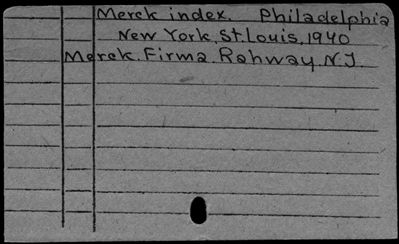 Merck index. Philadelphia
New York, St. Louis, 1940
Merck. Firma. Rahway. N.J.